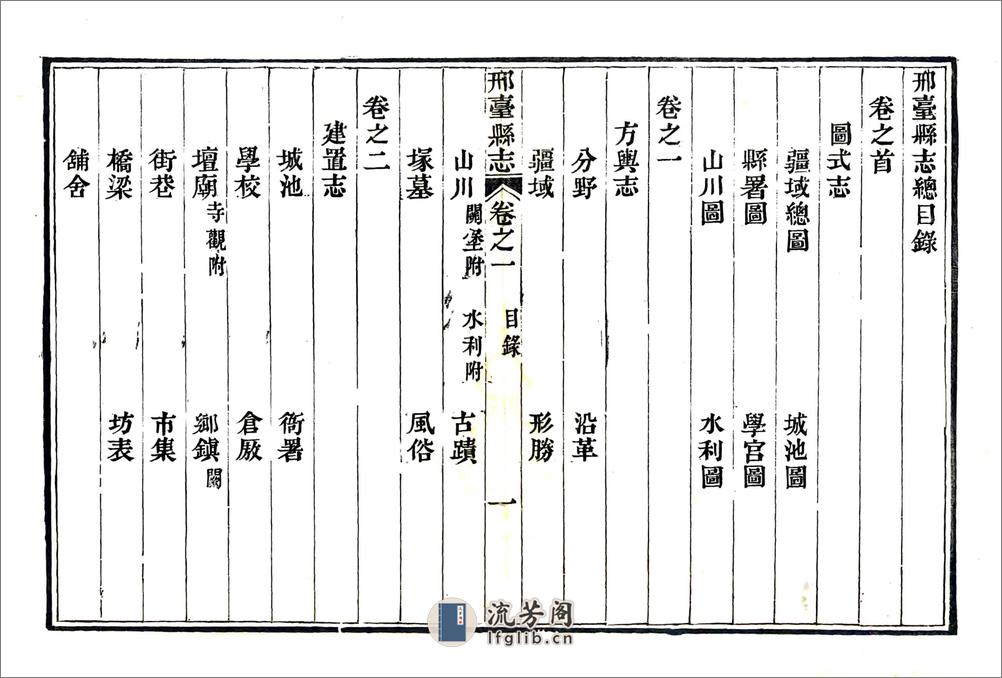 邢臺縣志總目錄
卷之首
圖式志
疆域總圖　城池圖
縣署圖　學宮圖
山川圖　水利圖
卷之一
方輿志
分野　沿革
疆域　形勝
邢臺縣志　卷之一　目錄　一
山川關堡附　水利附　古蹟
塚墓　風俗
卷之二
建置志
城池　衙署
學校　倉厫
壇廟寺觀附　鄉鎮關
街巷　市集
橋梁　坊表
舖舍
流芳阁
lfglib.cn